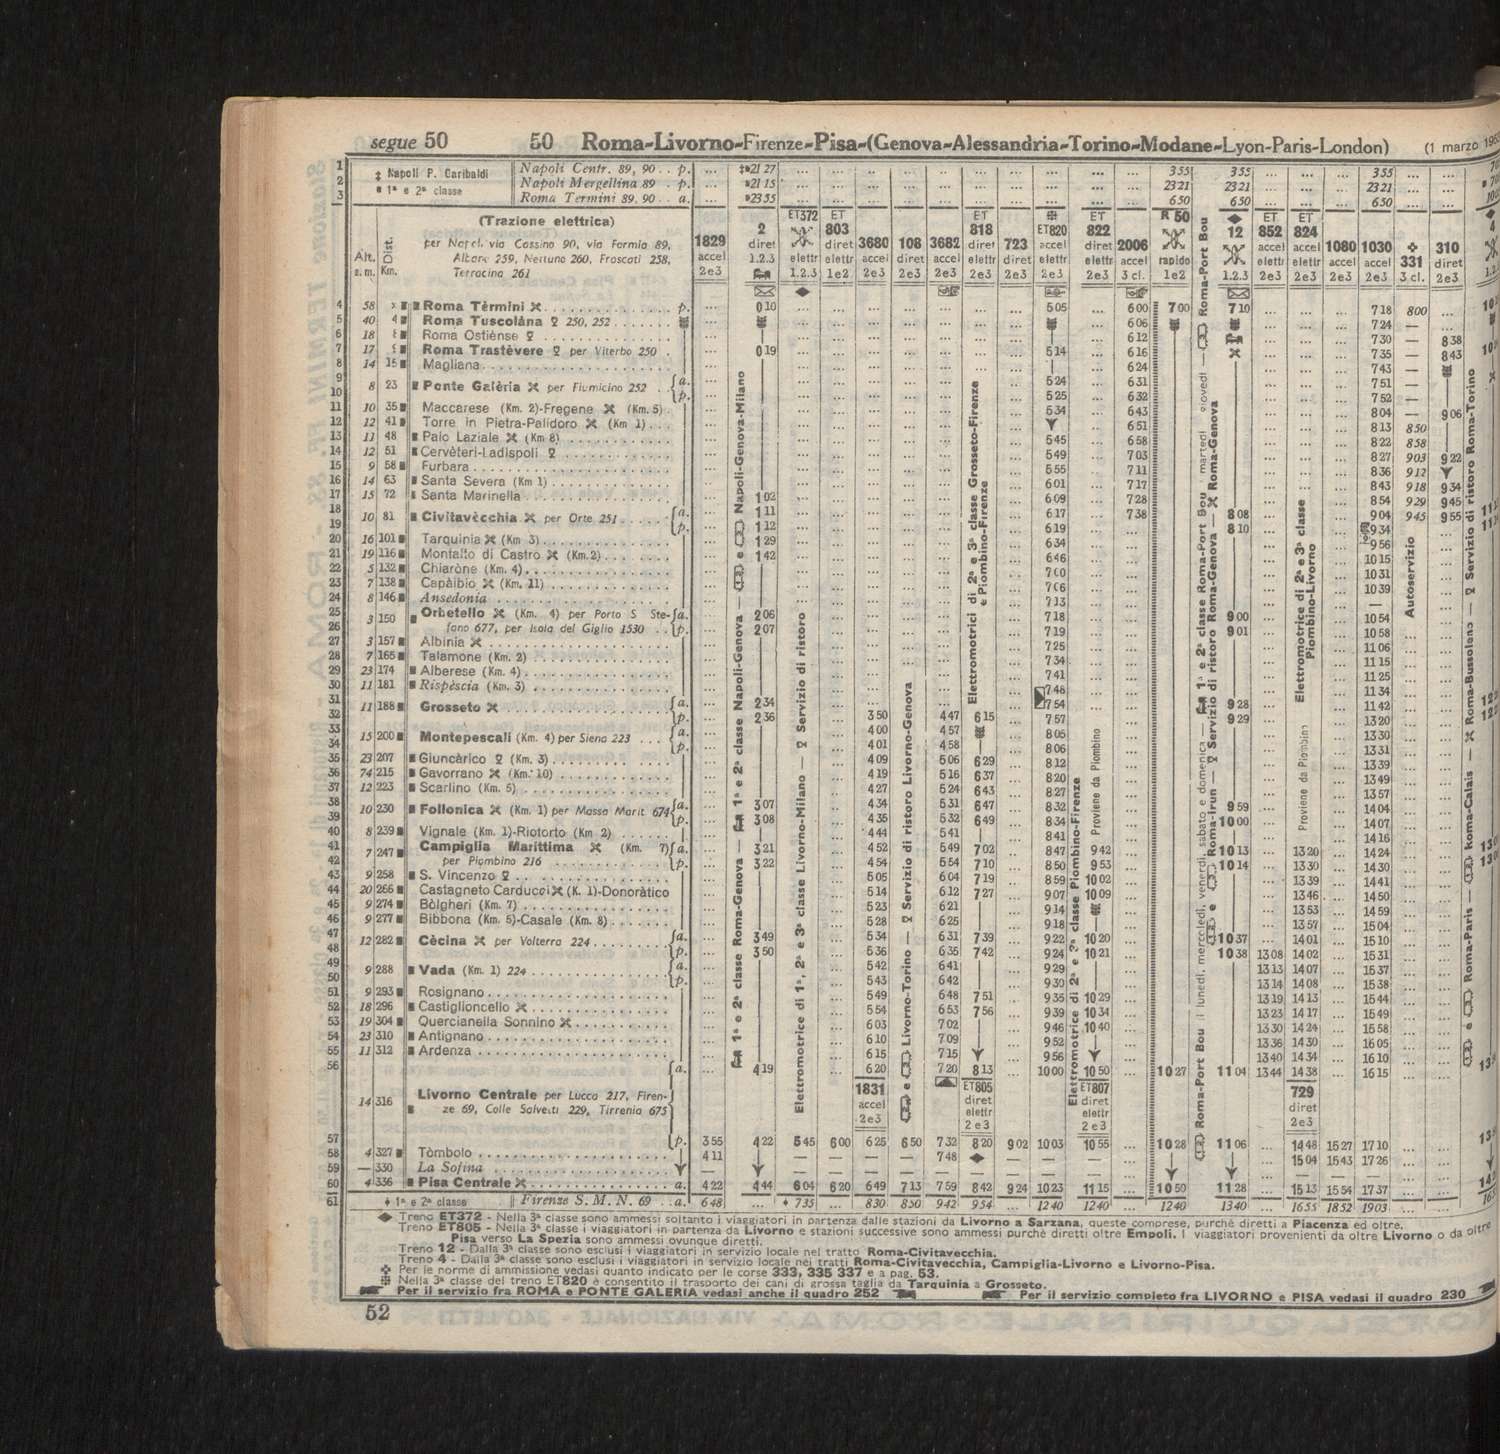 segue 50 50 Roma-Livorno-Firenze-Pisa-(Genova-Alessandria-Torino-Modane-Lyon-Paris-London) (1 marzo
1 ‡ Napoli P. Garibaldi Napoli Centr. 89, 90 . . p. ... ‡■21 27 ... 3 55 3 55 ... 3 55
2 ■ 1ª e 2ª classe Napoli Mergellina 89 . p. ... ■21 15 ... 23 21 23 21 ... 23 21
3 Roma Termini 89. 90 . . a. ... ■23 55 ... 6 50 6 50 ... 6 50
(Trazione elettrica)
per Napoli via Cassino 90, via Formia 89,
Albano 259, Nettuno 260, Frascati 258,
Terracina 261
Alt. s. m. Dist. Km.
1829 accel 2e3
2 diret 1.2.3
ET372 elettr 1.2.3
ET 803 diret 1e2
3680 accel 2e3
108 diret 2e3
3682 accel 2e3
ET 818 diret elettr 2e3
723 diret 2e3
ET820 accel elettr 2e3
ET 822 diret elettr 2e3
2006 accel 3 cl.
R 50 rapido 1e2
12 1.2.3
ET 852 accel elettr 2e3
ET 824 accel elettr 2e3
1080 accel 2e3
1030 accel 2e3
331 3 cl.
310 diret 2e3
4 58 Roma Tèrmini p. ... 0 10 ... 5 05 ... 6 00 7 00 7 10 ... 7 18 8 00 ...
5 40 4 Roma Tuscolàna 250, 252 ... 6 06 ... 7 24 —
6 18 Roma Ostiènse ... 6 12 ... 7 30 — 8 38
7 17 Roma Trastèvere per Viterbo 250 . ... 0 19 ... 5 14 ... 6 16 ... 7 35 — 8 43
8 14 15 Magliana ... 6 24 ... 7 43 —
9 8 23 Ponte Galèria per Fiumicino 252 . . a. ... 5 24 ... 6 31 ... 7 51 —
10 p. ... 5 25 ... 6 32 ... 7 52 —
11 10 35 Maccarese (Km. 2)-Fregene (Km. 5) . ... 5 34 ... 6 43 ... 8 04 — 9 06
12 12 41 Torre in Pietra-Palidoro (Km 1) ... 6 51 ... 8 13 8 50
13 11 48 Palo Laziale (Km 8) ... 5 45 ... 6 58 ... 8 22 8 58
14 12 51 Cervèteri-Ladispoli ... 5 49 ... 7 03 ... 8 27 9 03 9 22
15 9 58 Furbara ... 5 55 ... 7 11 ... 8 36 9 12
16 14 63 Santa Severa (Km 1) ... 6 01 ... 7 17 ... 8 43 9 18 9 34
17 15 72 Santa Marinella ... 1 02 ... 6 09 ... 7 28 ... 8 54 9 29 9 45
18 10 81 Civitavècchia per Orte 251 a. ... 1 11 ... 6 17 ... 7 38 ... 8 08 ... 9 04 9 45 9 55
19 p. ... 1 12 ... 6 19 ... 8 10 ... 9 34
20 16 101 Tarquinia (Km 3) ... 1 29 ... 6 34 ... 9 56
21 19 116 Montalto di Castro (Km.2) ... 1 42 ... 6 46 ... 10 15
22 5 132 Chiaròne (Km. 4) ... 7 00 ... 10 31
23 7 138 Capàlbio (Km. 11) ... 7 06 ... 10 39
24 8 146 Ansedonia ... 7 13 ... —
25 3 150 Orbetello (Km. 4) per Porto S Ste- a. ... 2 06 ... 7 18 ... 9 00 ... 10 54
26 fano 677, per Isola del Giglio 1530 . . p. ... 2 07 ... 7 19 ... 9 01 ... 10 58
27 3 157 Albinia ... 7 25 ... 11 06
28 7 165 Talamone (Km. 2) ... 7 34 ... 11 15
29 23 174 Alberese (Km. 4) ... 7 41 ... 11 25
30 11 181 Rispèscia (Km. 3) ... 7 48 ... 11 34
31 11 188 Grosseto a. ... 2 34 ... 7 54 ... 9 28 ... 11 42
32 p. ... 2 36 ... 3 50 4 47 6 15 ... 7 57 ... 9 29 ... 13 20
33 15 200 Montepescali (Km. 4) per Siena 223 . . . a. ... 4 00 4 57 ... 8 05 ... 13 30
34 p. ... 4 01 4 58 ... 8 06 ... 13 31
35 23 207 Giuncàrico (Km. 3) ... 4 09 5 06 6 29 ... 8 12 ... 13 39
36 74 215 Gavorrano (Km. 10) ... 4 19 5 16 6 37 ... 8 20 ... 13 49
37 12 223 Scarlino (Km. 5) ... 4 27 5 24 6 43 ... 8 27 ... 13 57
38 10 230 Follonica (Km. 1) per Massa Marit 674 a. ... 3 07 ... 4 34 5 31 6 47 ... 8 32 ... 9 59 ... 14 04
39 p. ... 3 08 ... 4 35 5 32 6 49 ... 8 34 ... 10 00 ... 14 07
40 8 239 Vignale (Km. 1)-Riotorto (Km 2) ... 4 44 5 41 ... 8 41 ... 14 16
41 7 247 Campiglia Marittima (Km. 7) a. ... 3 21 ... 4 52 5 49 7 02 ... 8 47 9 42 ... 10 13 ... 13 20 ... 14 24
42 per Piombino 216 p. ... 3 22 ... 4 54 5 54 7 10 ... 8 50 9 53 ... 10 14 ... 13 30 ... 14 30
43 9 258 S. Vincenzo ... 5 05 6 04 7 19 ... 8 59 10 02 ... 13 39 ... 14 41
44 20 266 Castagneto Carducci (K. 1)-Donoràtico ... 5 14 6 12 7 27 ... 9 07 10 09 ... 13 46 ... 14 50
45 9 274 Bòlgheri (Km. 7) ... 5 23 6 21 ... 9 14 ... 13 53 ... 14 59
46 9 277 Bibbona (Km. 5)-Casale (Km. 8) ... 5 28 6 25 ... 9 18 ... 13 57 ... 15 04
47 12 282 Cècina per Volterra 224 a. ... 3 49 ... 5 34 6 31 7 39 ... 9 22 10 20 ... 10 37 ... 14 01 ... 15 10
48 p. ... 3 50 ... 5 36 6 35 7 42 ... 9 24 10 21 ... 10 38 13 08 14 02 ... 15 31
49 9 288 Vada (Km. 1) 224 a. ... 5 42 6 41 ... 9 29 ... 13 13 14 07 ... 15 37
50 p. ... 5 43 6 42 ... 9 30 ... 13 14 14 08 ... 15 38
51 9 293 Rosignano ... 5 49 6 48 7 51 ... 9 35 10 29 ... 13 19 14 13 ... 15 44
52 18 296 Castiglioncello ... 5 54 6 53 7 56 ... 9 39 10 34 ... 13 23 14 17 ... 15 49
53 19 304 Quercianella Sonnino ... 6 03 7 02 ... 9 46 10 40 ... 13 30 14 24 ... 15 58
54 23 310 Antignano ... 6 10 7 09 ... 9 52 ... 13 36 14 30 ... 16 05
55 11 312 Ardenza ... 6 15 7 15 ... 9 56 ... 13 40 14 34 ... 16 10
56 14 316 Livorno Centrale per Lucca 217, Firen- a. ... 4 19 ... 6 20 7 20 8 13 ... 10 00 10 50 ... 10 27 11 04 13 44 14 38 ... 16 15
ze 69, Colle Salvetti 229, Tirrenia 675
1831 accel 2e3
ET805 diret elettr 2 e 3
ET807 diret elettr 2 e 3
729 diret 2 e 3
57 p. 3 55 4 22 5 45 6 00 6 25 6 50 7 32 8 20 9 02 10 03 10 55 ... 10 28 11 06 ... 14 48 15 27 17 10
58 4 327 Tòmbolo 4 11 — — — 7 48 — — — ... 15 04 15 43 17 26
59 — 330 La Sofina
60 4 336 Pisa Centrale a. 4 22 4 44 6 04 6 20 6 49 7 13 7 59 8 42 9 24 10 23 11 15 ... 10 50 11 28 ... 15 13 15 54 17 37
61 ♦ 1ª e 2ª classe Firenze S. M. N. 69 . . a. 6 48 ... ♦ 7 35 ... 8 30 8 50 9 42 9 54 ... 12 40 12 40 ... 12 40 13 40 ... 16 55 18 52 19 03
1ª e 2ª classe Roma-Genova — 1ª e 2ª classe Napoli-Genova — e Napoli-Genova-Milano
Elettromotrice di 1ª, 2ª e 3ª classe Livorno-Milano — Servizio di ristoro
e Livorno-Torino — Servizio di ristoro Livorno-Genova
Elettromotrici di 2ª e 3ª classe Grosseto-Firenze e Piombino-Firenze
Elettromotrice di 2ª e 3ª classe Piombino-Firenze
Proviene da Piombino
Roma-Port Bou il lunedì, mercoledì, venerdì, sabato e domenica — 1ª e 2ª classe Roma-Port Bou martedì giovedì — Roma-Port Bou
e Roma-Irun — Servizio di ristoro Roma-Genova — Roma-Genova
Proviene da Piombino
Elettromotrice di 2ª e 3ª classe Piombino-Livorno
Autoservizio
e Roma-Paris — Roma-Calais — Roma-Bussoleno — Servizio di ristoro Roma-Torino
◆ Treno ET372 - Nella 3ª classe sono ammessi soltanto i viaggiatori in partenza dalle stazioni da Livorno a Sarzana, queste comprese, purchè diretti a Piacenza ed oltre.
Treno ET805 - Nella 3ª classe i viaggiatori in partenza da Livorno e stazioni successive sono ammessi purchè diretti oltre Empoli. I viaggiatori provenienti da oltre Livorno o da oltre
Pisa verso La Spezia sono ammessi ovunque diretti.
Treno 12 - Dalla 3ª classe sono esclusi i viaggiatori in servizio locale nel tratto Roma-Civitavecchia.
Treno 4 - Dalla 3ª classe sono esclusi i viaggiatori in servizio locale nei tratti Roma-Civitavecchia, Campiglia-Livorno e Livorno-Pisa.
Per le norme di ammissione vedasi quanto indicato per le corse 333, 335 337 e a pag. 53.
Nella 3ª classe del treno ET820 è consentito il trasporto dei cani di grossa taglia da Tarquinia a Grosseto.
Per il servizio fra ROMA e PONTE GALERIA vedasi anche il quadro 252 Per il servizio completo fra LIVORNO e PISA vedasi il quadro 230
52